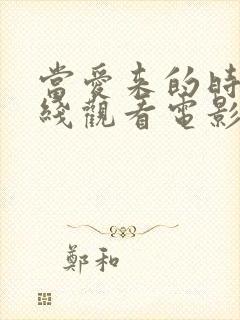 當愛來的時
綫觀看電影
鄭和